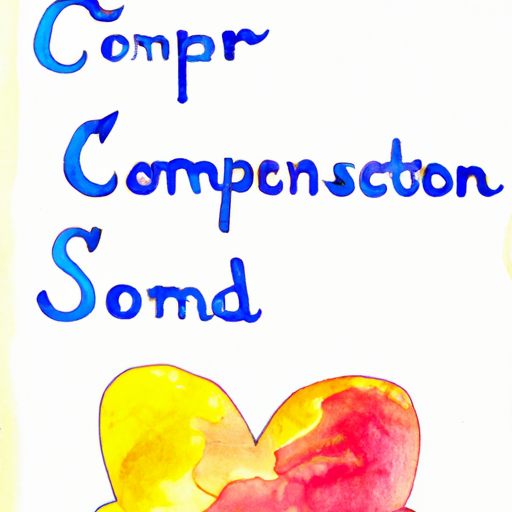 Compr
Compcnscton
Somd